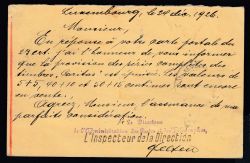 Luxembourg, le 24 déc. 1926.
Monsieur,
En réponse à votre carte postale du
ct. j'ai l'honneur de vous informer
que la provision des séries complètes de
timbres. Caritas est épuisée. Les valeurs de
5+5, 40+10 et 50+15 centimes sont encore
en vente.
Agréez, Monsieur, l'assurance de ma
parfaite considération.
Le Directeur
L'Inspecteur de la Direction